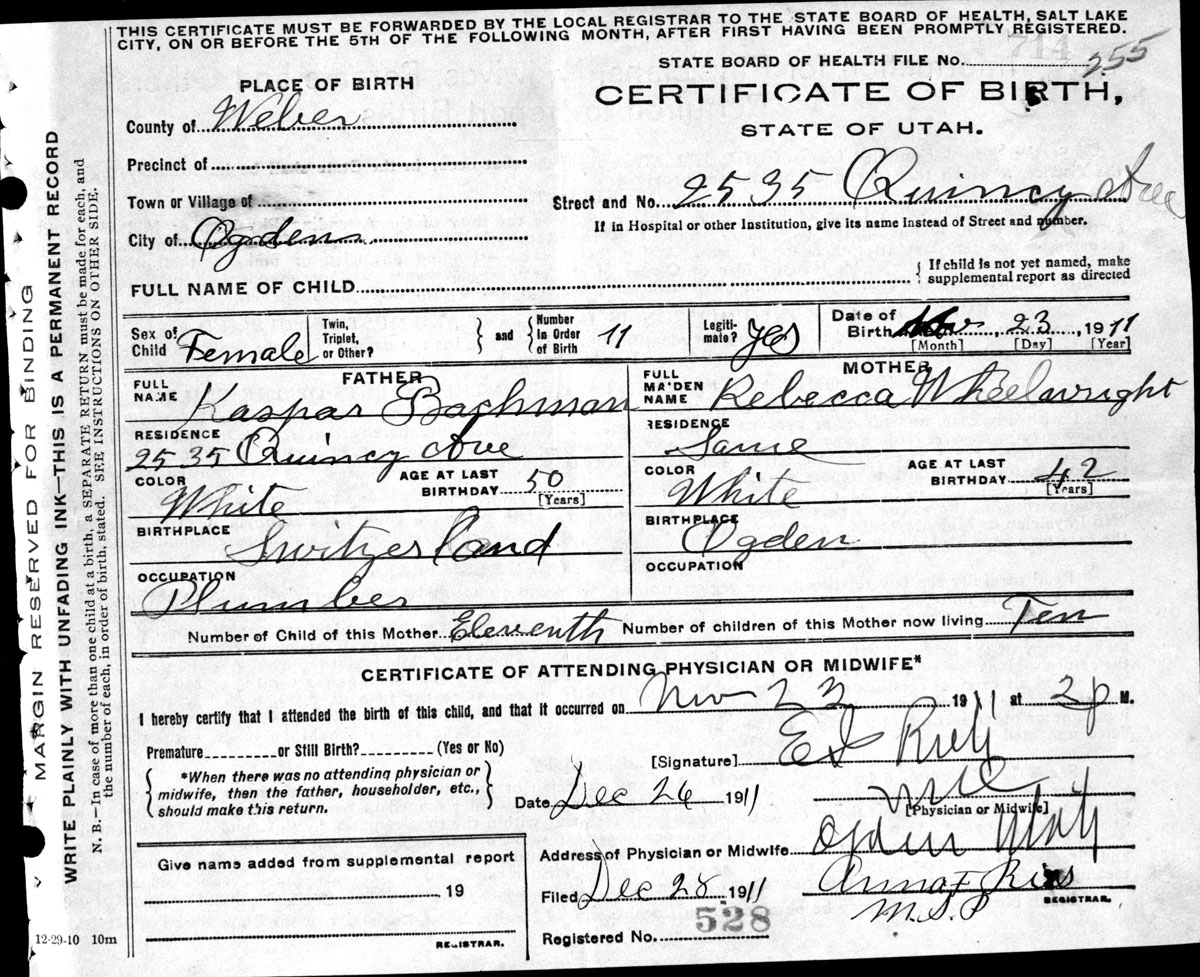 THIS CERTIFICATE MUST BE FORWARDED BY THE LOCAL REGISTRAR TO THE STATE BOARD OF HEALTH, SALT LAKE
CITY, ON OR BEFORE THE 5TH OF THE FOLLOWING MONTH, AFTER FIRST HAVING BEEN PROMPTLY REGISTERED.
STATE BOARD OF HEALTH FILE No. 255
PLACE OF BIRTH
CERTIFICATE OF BIRTH,
STATE OF UTAH.
County of Weber
Precinct of
Town or Village of
Street and No. 2535 Quincy Ave
City of Ogden
If in Hospital or other Institution, give its name instead of Street and number.
FULL NAME OF CHILD
{ If child is not yet named, make
supplemental report as directed
Sex of Child Female
Twin, Triplet, or Other? } and { Number in Order of Birth 11
Legiti-mate? Yes
Date of Birth Nov 23 1911
[Month] [Day] [Year]
FATHER
FULL NAME Kaspar Bachman
RESIDENCE
2535 Quincy Ave
COLOR White
AGE AT LAST BIRTHDAY 50 [Years]
BIRTHPLACE Switzerland
OCCUPATION
Plumber
MOTHER
FULL MAIDEN NAME Rebecca Wheelwright
RESIDENCE
Same
COLOR White
AGE AT LAST BIRTHDAY 42 [Years]
BIRTHPLACE Ogden
OCCUPATION
Number of Child of this Mother Eleventh Number of children of this Mother now living Ten
CERTIFICATE OF ATTENDING PHYSICIAN OR MIDWIFE*
I hereby certify that I attended the birth of this child, and that it occurred on Nov 23 1911 at 2p M.
Premature or Still Birth? (Yes or No)
[Signature] Rich
{ *When there was no attending physician or
midwife, then the father, householder, etc.,
should make this return. }
Date Dec 26 1911
[Physician or Midwife]
Give name added from supplemental report
19
REGISTRAR.
Address of Physician or Midwife Ogden Utah
Filed Dec 28 1911
Anna F
REGISTRAR.
Registered No. 528
MARGIN RESERVED FOR BINDING
WRITE PLAINLY WITH UNFADING INK—THIS IS A PERMANENT RECORD
N. B.—In case of more than one child at a birth, a SEPARATE RETURN must be made for each, and
the number of each, in order of birth, stated. SEE INSTRUCTIONS ON OTHER SIDE.
12-29-10 10m